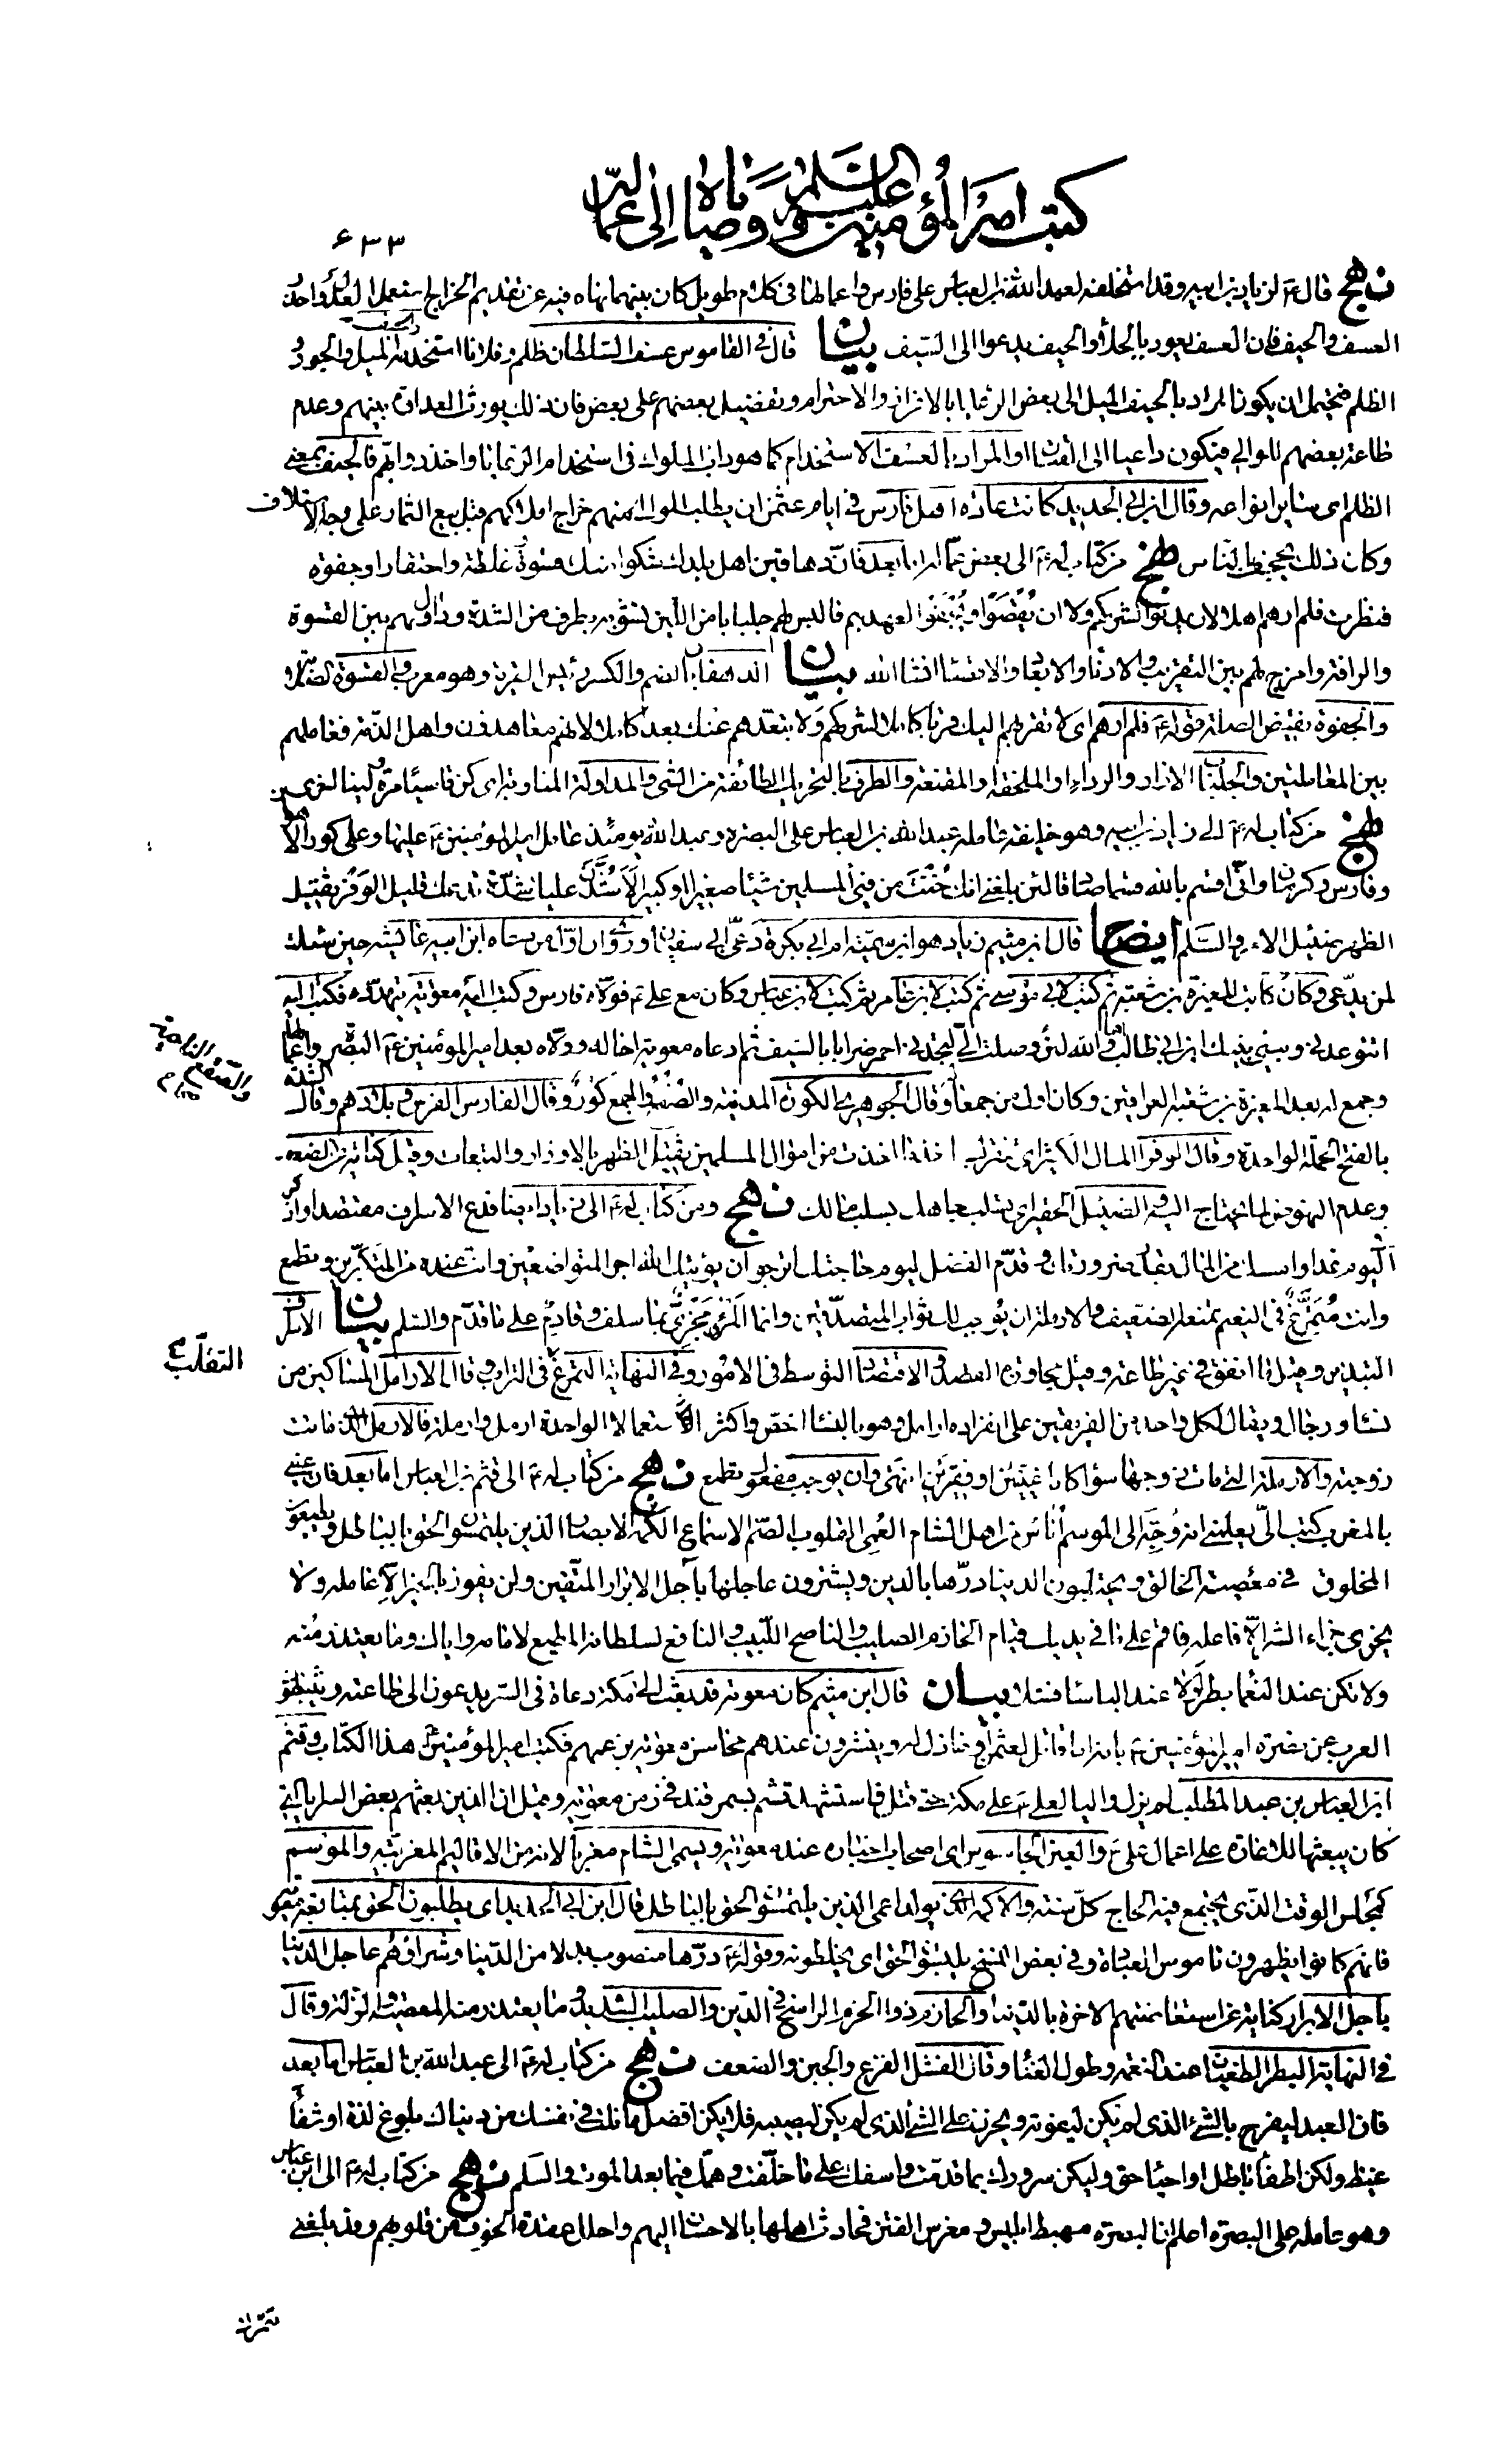 كتب امير المؤمنين عليه السلام ووصاياه الى عماله
٦٣٣
نهج قال ع لزياد بن ابيه وقد استخلفه لعبد الله بن العباس على فارس واعمالها فى كلام طويل كان بينهما نهاه فيه عن تقديم الخراج استعمل العدل واحذر
العسف والحيف فان العسف يعود بالجلاء والحيف يدعوا الى السيف بيان قال فى القاموس عسف السلطان ظلم وفلانا استخدمه والحيف الميل والجور و
الظلم فيحتمل ان يكون المراد بالحيف الميل الى بعض الرعايا بالاعزاز والاحترام وتفضيل بعضهم على بعض فان ذلك يورث العداوة بينهم وعدم
طاعة بعضهم للوالى فيكون داعيا الى القتال او المراد بالعسف الاستخدام كما هو داب الملوك فى استخدام الرعايا واخذ دوابهم فالحيف بمعنى
الظلم اى سائر انواعه وقال ابن ابى الحديد كانت عادة اهل فارس فى ايام عثمن ان يطلب الوالى منهم خراج املاكهم قبل بيع الثمار على وجه الاستلاف
وكان ذلك يجحف بالناس نهج من كتاب له ع الى بعض عماله اما بعد فان دهاقين اهل بلدك شكوا منك قسوة وغلظة واحتقارا وجفوة
فنظرت فلم ارهم اهلا لان يدنوا لشركهم ولا ان يقصوا ويجفوا لعهدهم فالبس لهم جلبابا من اللين تشوبه بطرف من الشدة وداول لهم بين القسوة
والرافة وامزج لهم بين التقريب والادناء والابعاد والاقصاء انشاء الله بيان الدهقان بالضم والكسر رئيس القرية وهو معرب والقسوة الصلابة
والجفوة نقيض الصلة قوله ع فلم ارهم اى لا تقربهم اليك قربا كاملا لشركهم ولا تبعدهم عنك بعدا كاملا لانهم معاهدون واهل الذمة فعاملهم
بين المعاملتين والجلباب الازار والرداء او الملحفة او المقنعة والطرف بالتحريك الطائفة من الشى والمداولة المناوبة اى كن قاسيا مرة ولينا اخرى
نهج من كتاب له ع الى زياد بن ابيه وهو خليفة عامله عبد الله بن العباس على البصرة وعبد الله يومئذ عامل امير المؤمنين ع عليها وعلى كور الاهواز
وفارس وكرمان وانى اقسم بالله قسما صادقا لئن بلغنى انك خنت من فىء المسلمين شيئا صغيرا او كبيرا لاشدن عليك شدة تدعك قليل الوفر ثقيل
الظهر ضئيل الامر والسلم ايضاح قال ابن ميثم زياد هو ابن سمية ام ابى بكرة دعى ابى سفيان وروى ان اول من دعاه ابن ابيه عائشة حين سئلت
لمن يدعى وكان كاتب المغيرة بن شعبة ثم كتب لابى موسى ثم كتب لابن عامر ثم كتب لابن عباس وكان مع على ع فولاه فارس وكتب اليه معوية يتهدده فكتب اليه
اتتوعدنى وبينى وبينك ابن ابى طالب اما والله لئن وصلت الى لتجدنى احمر ضرابا بالسيف ثم دعاه معوية اخا له وولاه بعد امير المؤمنين ع البصرة واعمالها
وجمع له بعد المغيرة بن شعبة العراقين وكان اول من جمعا له وقال الجوهرى الكورة المدينة والصقع والجمع كور وقال الفارس الفرس وبلادهم وقال الشدة
والصقع الناحية ص ح م
بالفتح الحملة الواحدة وقال الوفر المال الكثير اى تفتقر باخذ ما اخذت من اموال المسلمين ثقيل الظهر بالاوزار والتبعات وقيل كناية عن الضعف
وعدم النهوض لما يحتاج اليه والضئيل الحقير اى تسلب جاهك بسلب مالك نهج ومن كتاب له ع الى زياد ايضا فدع الاسراف مقتصدا واذكر
فى اليوم غدا وامسك من المال بقدر ضرورتك وقدم الفضل ليوم حاجتك اترجو ان يؤتيك الله اجر المتواضعين وانت عنده من المتكبرين وتطمع
وانت متمرغ فى النعيم تمنعه الضعيف والارملة ان يوجب لك ثواب المتصدقين وانما المرء مجزى بما سلف وقادم على ما قدم والسلم بيان الاسراف
التبذير وقيل ما انفق فى غير طاعة وقيل مجاوزة القصد والاقتصاد التوسط فى الامور وفى النهاية التمرغ فى التراب وقال الارامل المساكين من
التقلب ص
نساء ورجال ويقال لكل واحد من الفريقين على انفراده ارامل وهو بالنساء اخص واكثر استعمالا الواحدة ارمل وارملة فالارمل الذى ماتت
زوجته والارملة التى مات زوجها سواء كانا غنيين او فقيرين انتهى وان يوجب مفعول تطمع نهج من كتاب له ع الى قثم بن العباس اما بعد فان عينى
بالمغرب كتب الى يعلمنى انه وجه الى الموسم اناس من اهل الشام العمى القلوب الصم الاسماع الكمه الابصار الذين يلتمسون الحق بالباطل ويطيعون
المخلوق فى معصية الخالق ويحتلبون الدنيا درها بالدين ويشترون عاجلها بآجل الابرار المتقين ولن يفوز بالخير الا عامله ولا
يجزى جزاء الشر الا فاعله فاقم على ما فى يديك قيام الحازم الصليب والناصح اللبيب والتابع لسلطانه المطيع لامامه واياك وما يعتذر منه
ولا تكن عند النعماء بطرا ولا عند الباساء فشلا بيان قال ابن ميثم كان معوية قد بعث الى مكة دعاة فى السر يدعون الى طاعته ويثبطون
العرب عن نصرة امير المؤمنين ع بانه اما قاتل لعثمن او خاذل له وينشرون عندهم محاسن معوية بزعمهم فكتب امير المؤمنين ع هذا الكتاب وقثم
ابن العباس بن عبد المطلب لم يزل واليا لعلى ع على مكة حتى قتل ع واستشهد قثم بسمرقند فى زمن معوية وقيل ان الذين بعثهم بعض السرايا التى
كان يبعثها للاغارة على اعمال على ع والعين الجاسوس اى اصحاب اخباره عند معوية ويسمى الشام مغربا لانه من الاقاليم المغربية والموسم
كمجلس الوقت الذى يجتمع فيه الحاج كل سنة والاكمه الذى يولد اعمى الذين يلتمسون الحق بالباطل قال ابن ابى الحديد اى يطلبون الحق بمتابعة معوية
فانهم كانوا يظهرون ناموس العبادة وفى بعض النسخ يلبسون الحق اى يخلطونه وقوله ع درها منصوب بدلا من الدنيا وشراؤهم عاجل الدنيا
بآجل الابرار كناية عن استعاضتهم الاخرة بالدنيا والحازم ذو الحزم الراسخ فى الدين والصليب الشديد وما يعتذر منه المعصية والزلة وقال
فى النهاية البطر الطغيان عند النعمة وطول الغناء وقال الفشل الفزع والجبن والضعف نهج من كتاب له ع الى عبد الله بن العباس اما بعد
فان العبد ليفرح بالشىء الذى لم يكن ليفوته ويحزن على الشىء الذى لم يكن ليصيبه فلا يكن افضل ما نلت فى نفسك من دنياك بلوغ لذة او شفاء
غيظ ولكن اطفاء باطل او احياء حق وليكن سرورك بما قدمت واسفك على ما خلفت وهمك فيما بعد الموت والسلم نهج من كتاب له ع الى ابن عباس
وهو عامله على البصرة اعلم ان البصرة مهبط ابليس ومغرس الفتن فحادث اهلها بالاحسان اليهم واحلل عقدة الخوف من قلوبهم وقد بلغنى
تنمرك